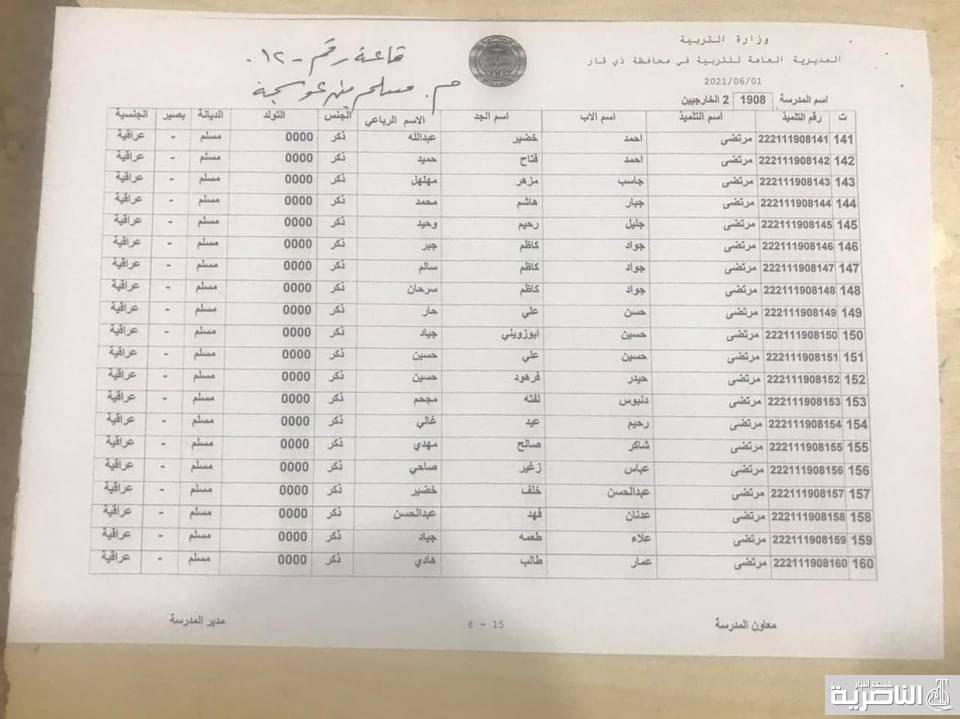 وزارة التربية
المديرية العامة للتربية في محافظة ذي قار
2021/06/01
قاعة رقم - ١٢ -
م. مسلم بن عوسجة
اسم المدرسة 1908 2 الخارجيين
ت رقم التلميذ اسم التلميذ اسم الاب اسم الجد الاسم الرباعي الجنس التولد الديانة بصير الجنسية
141 222111908141 مرتضى احمد خضير عبدالله ذكر 0000 مسلم - عراقية
142 222111908142 مرتضى احمد فتاح حميد ذكر 0000 مسلم - عراقية
143 222111908143 مرتضى جاسب مزهر مهلهل ذكر 0000 مسلم - عراقية
144 222111908144 مرتضى جبار هاشم محمد ذكر 0000 مسلم - عراقية
145 222111908145 مرتضى جليل رحيم وحيد ذكر 0000 مسلم - عراقية
146 222111908146 مرتضى جواد كاظم جبر ذكر 0000 مسلم - عراقية
147 222111908147 مرتضى جواد كاظم سالم ذكر 0000 مسلم - عراقية
148 222111908148 مرتضى جواد كاظم سرحان ذكر 0000 مسلم - عراقية
149 222111908149 مرتضى حسن علي حار ذكر 0000 مسلم - عراقية
150 222111908150 مرتضى حسين ابوزويني جياد ذكر 0000 مسلم - عراقية
151 222111908151 مرتضى حسين علي حسين ذكر 0000 مسلم - عراقية
152 222111908152 مرتضى حيدر فرهود حسين ذكر 0000 مسلم - عراقية
153 222111908153 مرتضى دنبوس لفته مجحم ذكر 0000 مسلم - عراقية
154 222111908154 مرتضى رحيم عيد غالي ذكر 0000 مسلم - عراقية
155 222111908155 مرتضى شاكر صالح مهدي ذكر 0000 مسلم - عراقية
156 222111908156 مرتضى عباس زغير صاحي ذكر 0000 مسلم - عراقية
157 222111908157 مرتضى عبدالحسن خلف خضير ذكر 0000 مسلم - عراقية
158 222111908158 مرتضى عدنان فهد عبدالحسن ذكر 0000 مسلم - عراقية
159 222111908159 مرتضى علاء طعمه جياد ذكر 0000 مسلم - عراقية
160 222111908160 مرتضى عمار طالب هادي ذكر 0000 مسلم - عراقية
معاون المدرسة
8 - 15
مدير المدرسة
شبكة أخبار
الناصرية